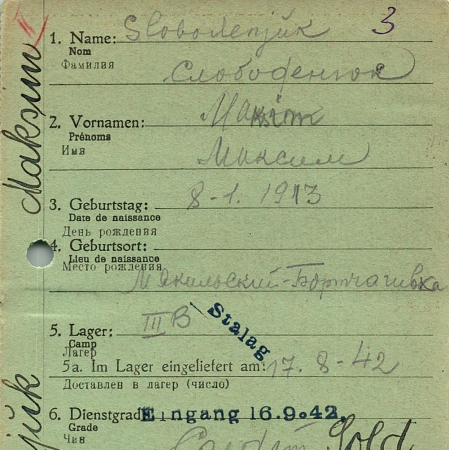 1. Name: Slobodenjuk 3
Nom
Фамилия Слободенюк
2. Vornamen: Maksim
Prénoms
Имя Максим
3. Geburtstag: 8-1. 1913
Date de naissance
День рождения
4. Geburtsort:
Lieu de naissance
Место рождения
-Бортчагивка
5. Lager: III B Stalag
Camp
Лагер
5a. Im Lager eingeliefert am: 17. 8-42
Доставлен в лагер (число)
6. Dienstgrad: Eingang 16.9.42.
Grade Sold
Чин
Maksim
juk